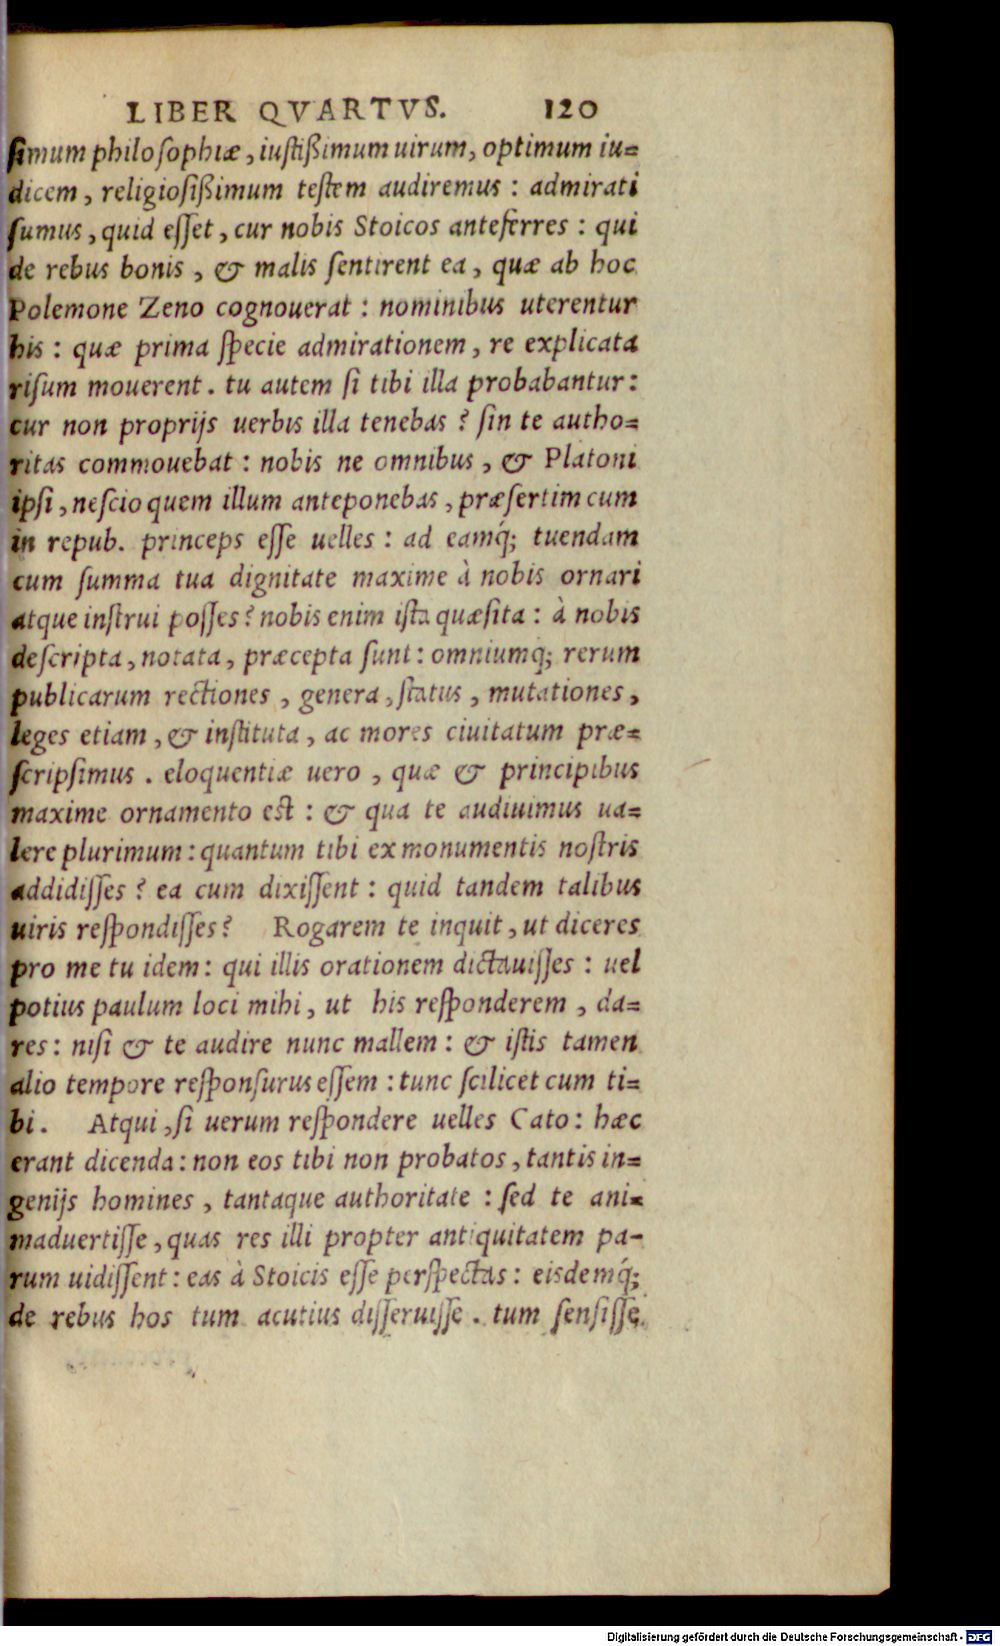 LIBER QVARTVS. 120
ſimum philoſophiæ, iuſtißimum uirum, optimum iu=
dicem, religioſißimum teſtem audiremus : admirati
ſumus, quid eſſet, cur nobis Stoicos anteferres : qui
de rebus bonis, & malis ſentirent ea, quæ ab hoc
Polemone Zeno cognouerat : nominibus uterentur
his : quæ prima ſpecie admirationem, re explicata
riſum mouerent. tu autem ſi tibi illa probabantur:
cur non proprijs uerbis illa tenebas? ſin te autho=
ritas commouebat : nobis ne omnibus, & Platoni
ipſi, neſcio quem illum anteponebas, præſertim cum
in repub. princeps eſſe uelles : ad eamq́; tuendam
cum ſumma tua dignitate maxime à nobis ornari
atque inſtrui poſſes? nobis enim iſta quæſita : à nobis
deſcripta, notata, præcepta ſunt : omniumq́; rerum
publicarum rectiones, genera, ſtatus, mutationes,
leges etiam, & inſtituta, ac mores ciuitatum præ=
ſcripſimus. eloquentiæ uero, quæ & principibus
maxime ornamento eſt : & qua te audiuimus ua=
lere plurimum : quantum tibi ex monumentis noſtris
addidiſſes? ea cum dixiſſent : quid tandem talibus
uiris reſpondiſſes? Rogarem te inquit, ut diceres
pro me tu idem : qui illis orationem dictauiſſes : uel
potius paulum loci mihi, ut his reſponderem, da=
res : niſi & te audire nunc mallem : & iſtis tamen
alio tempore reſponſurus eſſem : tunc ſcilicet cum ti=
bi. Atqui, ſi uerum reſpondere uelles Cato : hæc
erant dicenda : non eos tibi non probatos, tantis in=
genijs homines, tantaque authoritate : ſed te ani=
maduertiſſe, quas res illi propter antiquitatem pa-
rum uidiſſent : eas à Stoicis eſſe perſpectas : eiſdemq́;
de rebus hos tum acutius diſſeruiſſe. tum ſenſiſſe
Digitalisierung gefördert durch die Deutsche Forschungsgemeinschaft - DFG